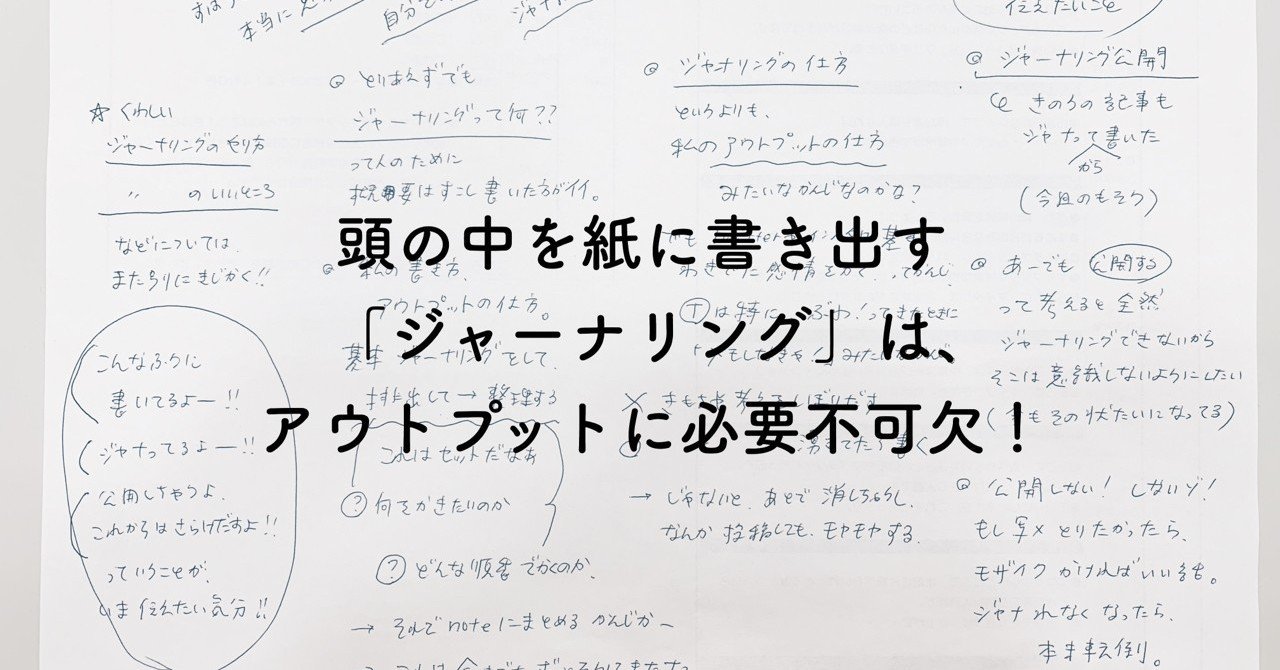 頭の中を紙に書き出す
「ジャーナリング」は、
アウトプットに必要不可欠！
本当に
自分
☆ くわしい
ジャーナリングのやり方
〃 のいいところ
などについては、
またちがうきじかく!!
こんなふうに
書いてるよー!!
ジャナってるよー!!
公開しちゃうよ、
これからはさらけだすよ!!
っていうことが、
いま伝えたい気分!!
◎ とりあえずでも
ジャーナリングって何??
って人のために
概要はすこし書いた方がイイ。
◎ 私の書き方、
アウトプットの仕方。
基本ジャーナリングをして、
排出して→整理する
これはセットだなあ
? 何をかきたいのか
? どんな順番でかくのか、
→ それでnoteにまとめるかんじかー
◎ ジャナリングの仕方
というよりも、
私のアウトプットの仕方
みたいなかんじなのかな?
わきでた感情をかく、ってかんじ
は特に ぶわ!ってきたときに
→ じゃないと、あとで消しちゃうし、
なんか投稿しても、モヤモヤする。
伝えたいこと
◎ ジャーナリング公開
きのうの記事も
ジャナって書いた
から
(今回のもそう)
◎ あーでも 公開する
って考えると全然
ジャーナリングできないから
そこは意識しないようにしたい
(今もその状たいになってる)
◎ 公開しない! しないぞ!
もし写メとりたかったら、
モザイクかければいいさ。
ジャナれなくなったら、
本末転倒。